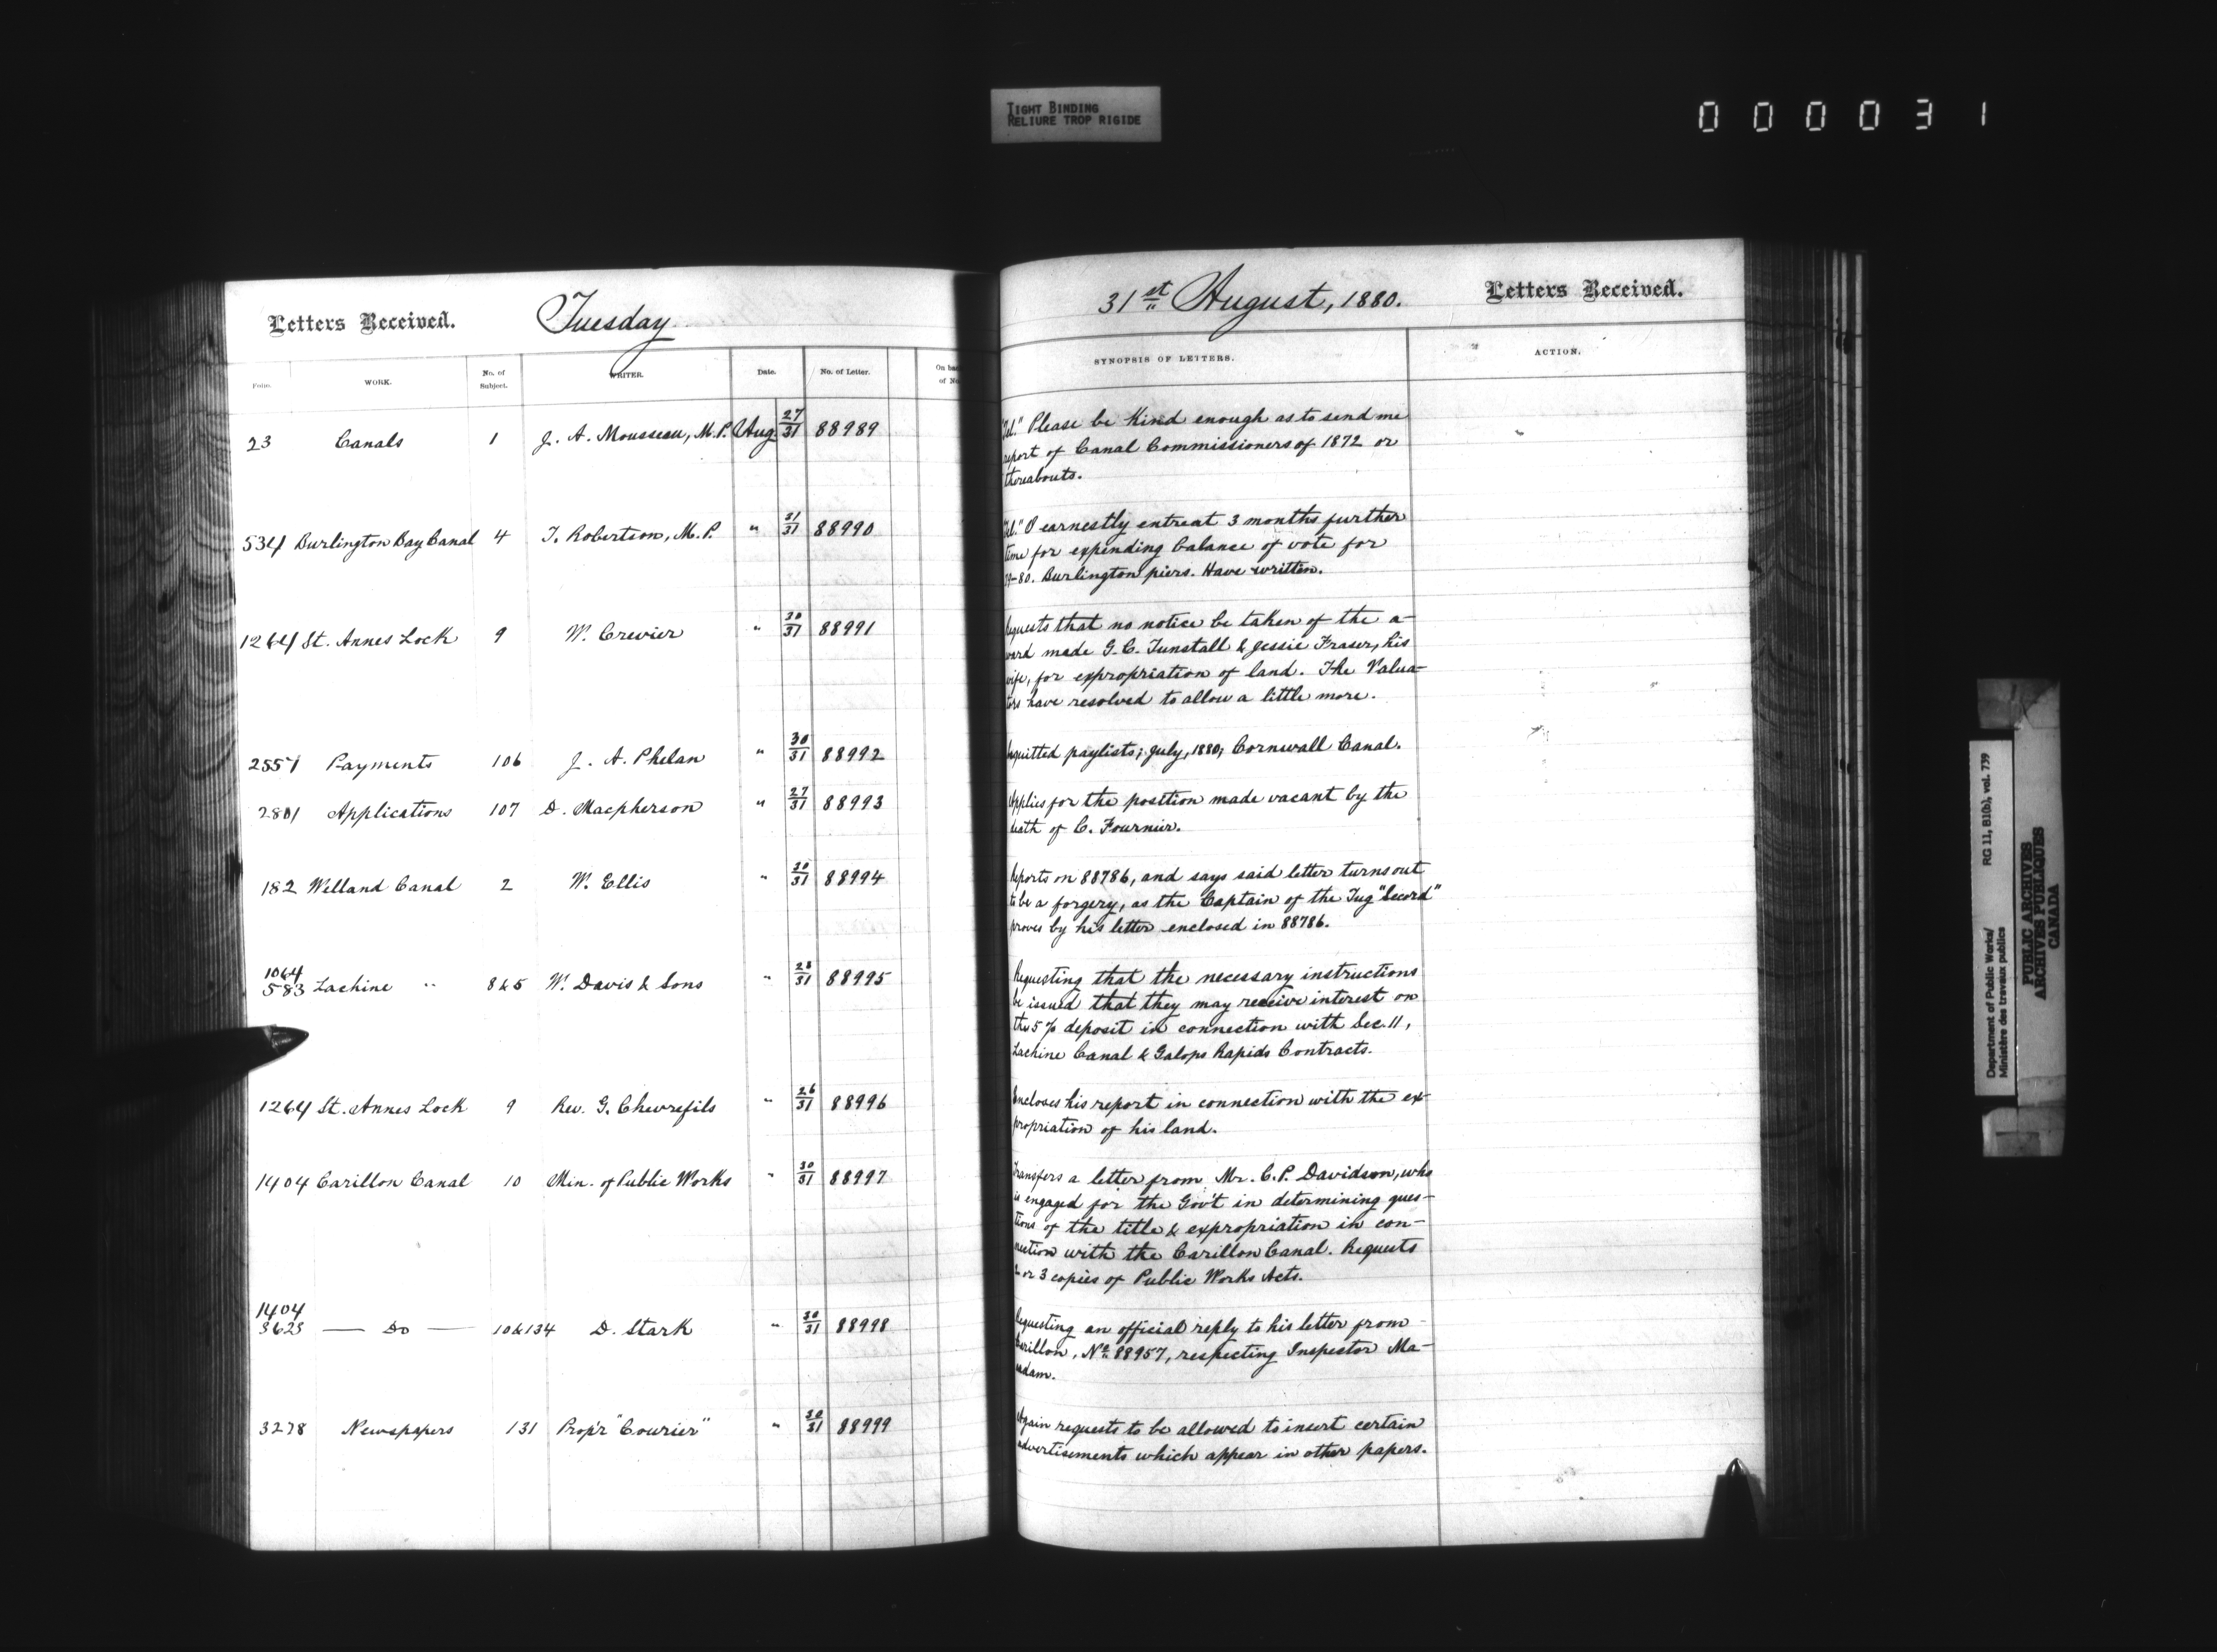 TIGHT BINDING
RELIURE TROP RIGIDE
000031
Letters Received.
Tuesday
Folio.
WORK.
No. of Subject.
WRITER.
Date.
No. of Letter.
23 Canals 1 J. A. Mousseau, M.P. Aug. 27/31 88989
534 Burlington Bay Canal 4 T. Robertson, M.P. " 31/31 88990
1264 St. Annes Lock 9 W. Crevier " 30/31 88991
2551 Payments 106 J. A. Phelan " 30/31 88992
2801 Applications 107 D. Macpherson " 27/31 88993
182 Welland Canal 2 W. Ellis " 30/31 88994
1064
583 Lachine " 8&5 W. Davis & Sons " 28/31 88995
1264 St. Annes Lock 9 Rev. G. Chevrefils " 26/31 88996
1404 Carillon Canal 10 Min. of Public Works " 30/31 88997
1404
3623 — Do — 10&134 D. Stark " 30/31 88998
3278 Newspapers 131 Prop'r "Courier" " 30/31 88999
31st August, 1880.
Letters Received.
SYNOPSIS OF LETTERS.
ACTION.
Tel." Please be kind enough as to send me
report of Canal Commissioners of 1872 or
thereabouts.
Tel." I earnestly entreat 3 months further
time for expending balance of vote for
79-80. Burlington piers. Have written.
Requests that no notice be taken of the a-
ward made G. C. Tunstall & Jessie Fraser, his
wife, for expropriation of land. The Valua-
tors have resolved to allow a little more.
Acquitted paylists; July, 1880; Cornwall Canal.
Applies for the position made vacant by the
death of C. Fournier.
Reports on 88786, and says said letter turns out
to be a forgery, as the Captain of the Tug "Secord"
proves by his letter enclosed in 88786.
Requesting that the necessary instructions
be issued that they may receive interest on
the 5% deposit in connection with Sec. 11,
Lachine Canal & Galops Rapids Contracts.
Encloses his report in connection with the ex-
propriation of his land.
Transfers a letter from Mr. C. P. Davidson, who
is engaged for the Gov't in determining ques-
tions of the title & expropriation in con-
nection with the Carillon Canal. Requests
2 or 3 copies of Public Works Acts.
Requesting an official reply to his letter from
Carillon, No. 88957, respecting Inspector Ma-
adam.
Again requests to be allowed to insert certain
advertisements which appear in other papers.
Department of Public Works/
Ministère des travaux publics
RG 11, B1(b), vol. 739
PUBLIC ARCHIVES
ARCHIVES PUBLIQUES
CANADA